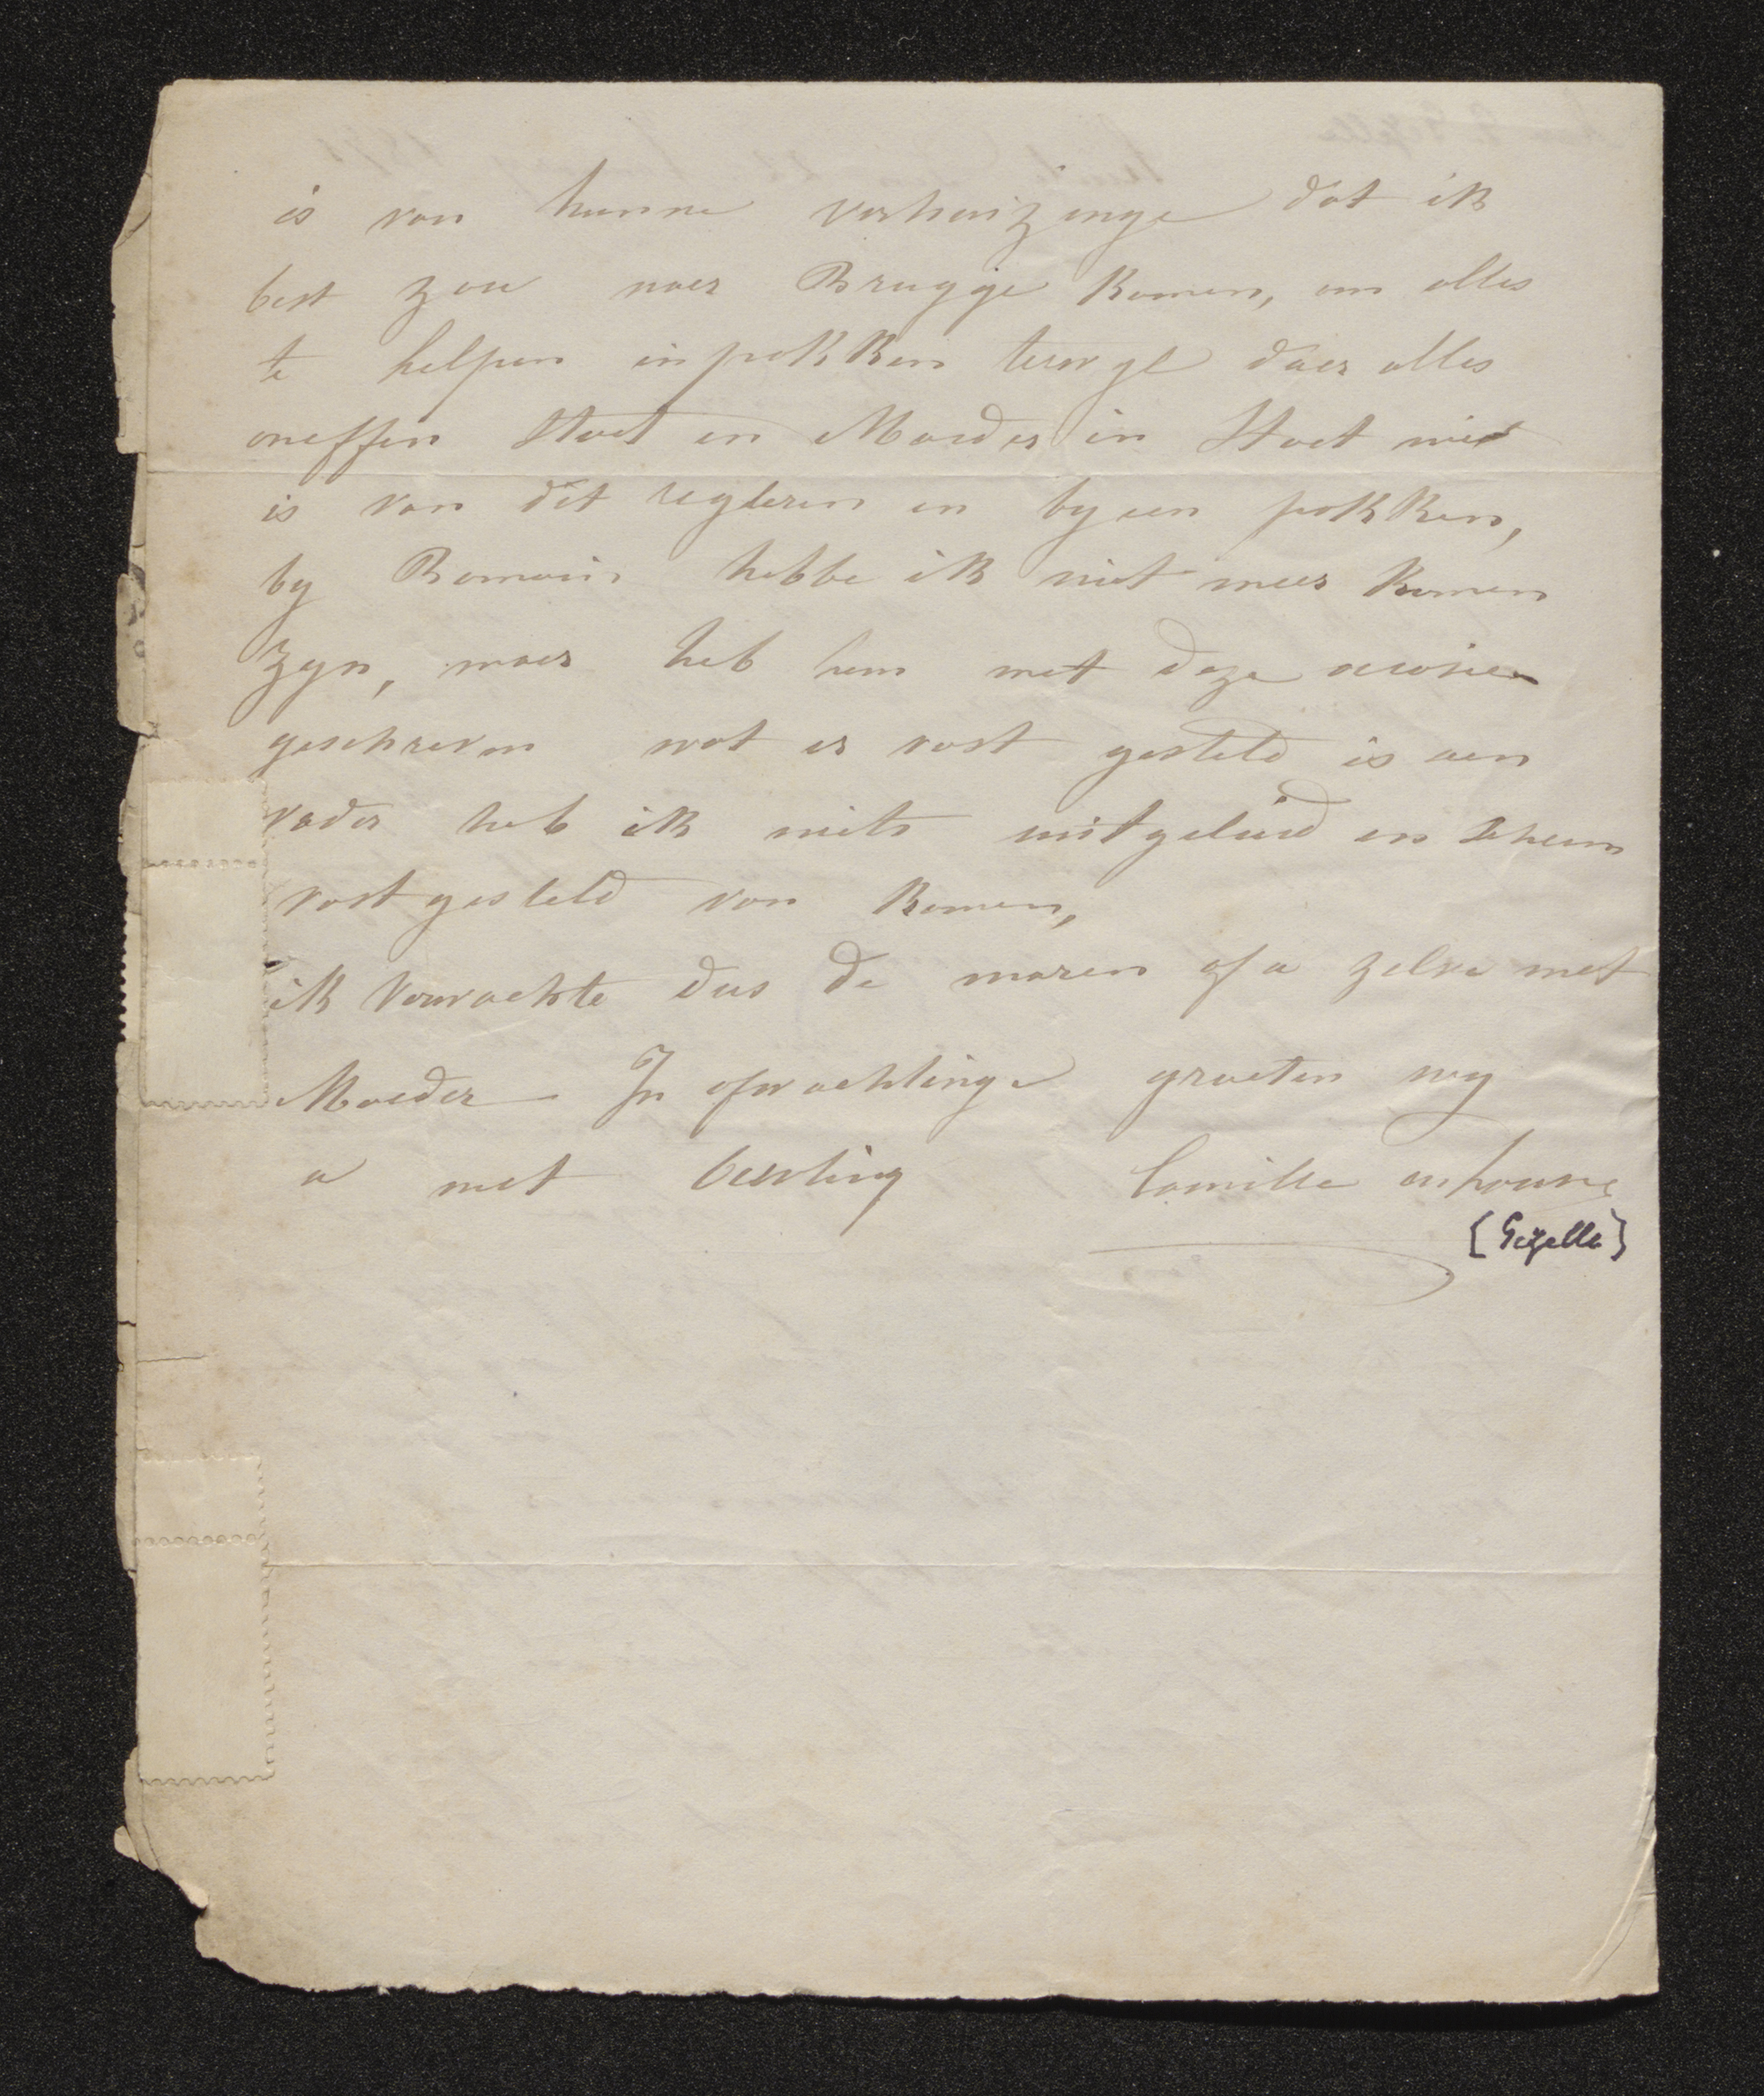 is van hunne verhuizinge dat ik
best zou naer Brugge komen, om alles
te helpen inpakken terwyl daer alles
oneffen staet en Moeder in staet niet
is van dit regleren en byeen pakken,
by Romain hebbe ik niet meer komen
zyn, maer heb hem met deze
geschreven wat er vast gesteld is aen
vader heb ik niets uitgeleid en
vastgesteld van komen,
ik verwachte dus de maren of u zelve met
Moeder - In afwachtinge groeten wy
u met Camille
[Gezelle]